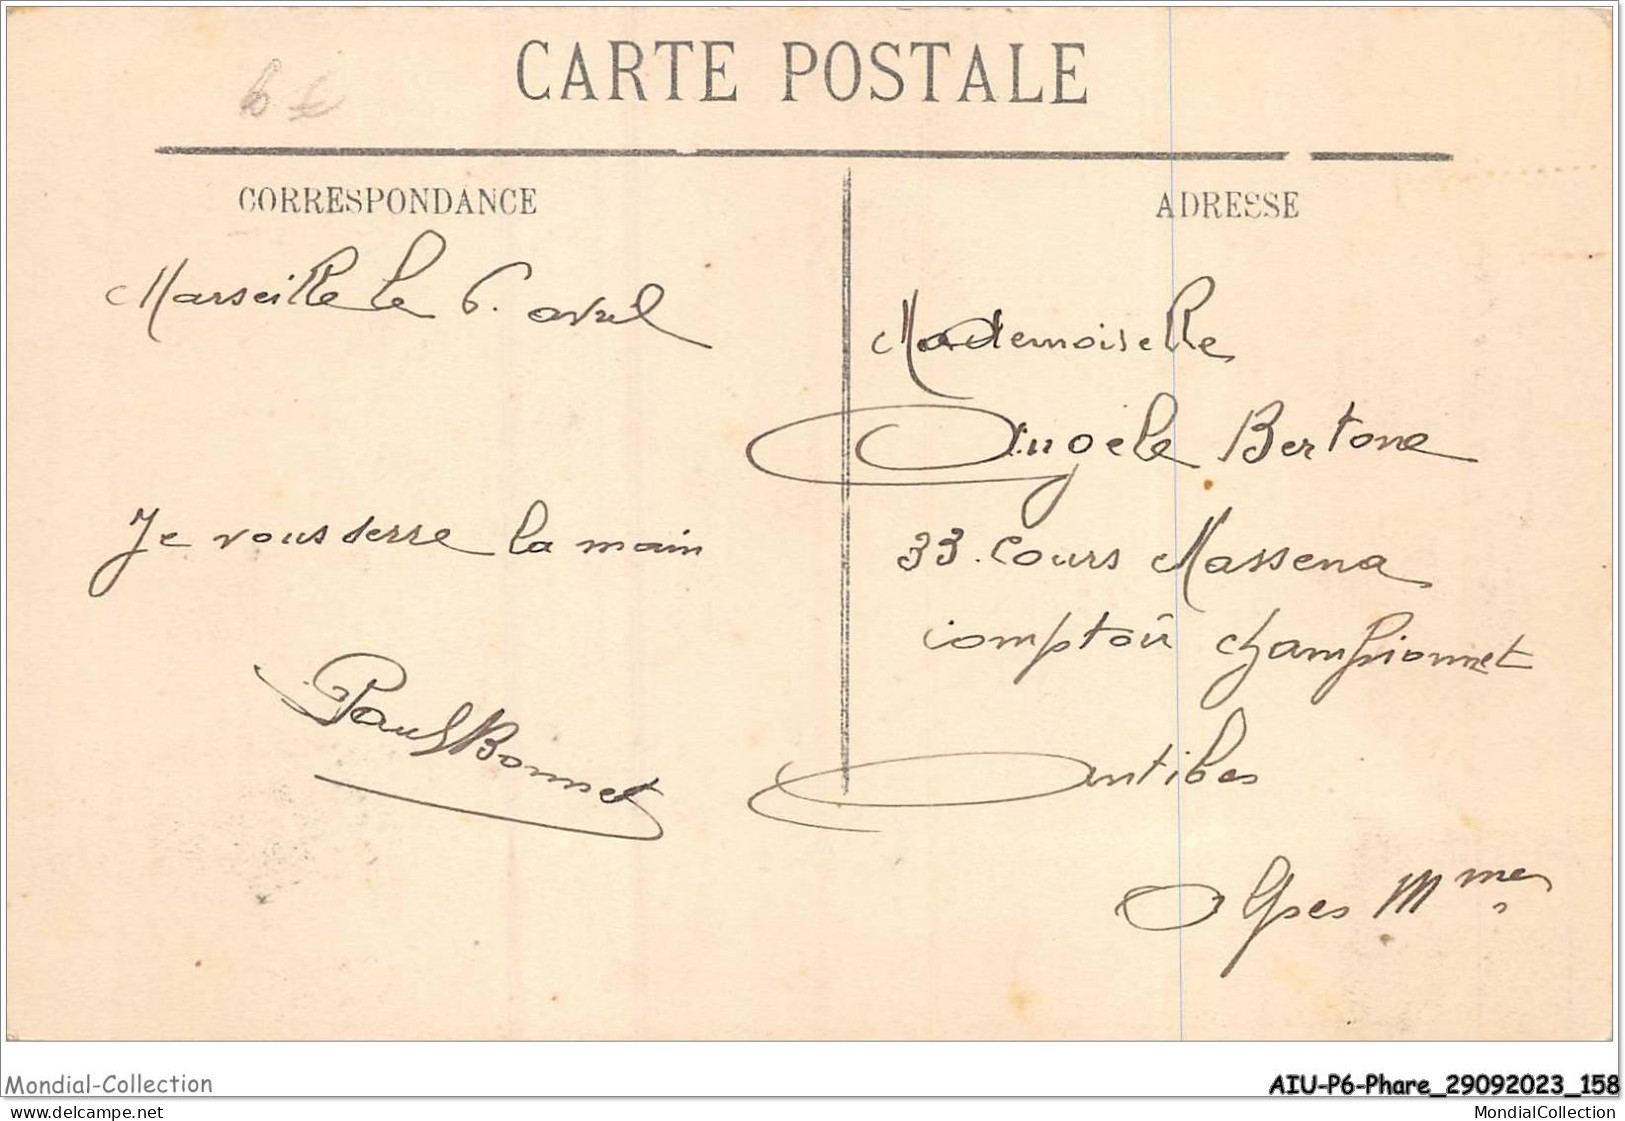 6 €
CARTE POSTALE
CORRESPONDANCE
Marseille le 6. avril
Je vous serre la main
Paul Bonnet
ADRESSE
Mademoiselle
Angèle Bertone
33. Cours Massena
comptoir championnet
Antibes
Alpes Mmes
Mondial-Collection
AIU-P6-Phare_29092023_158
www.delcampe.net
MondialCollection